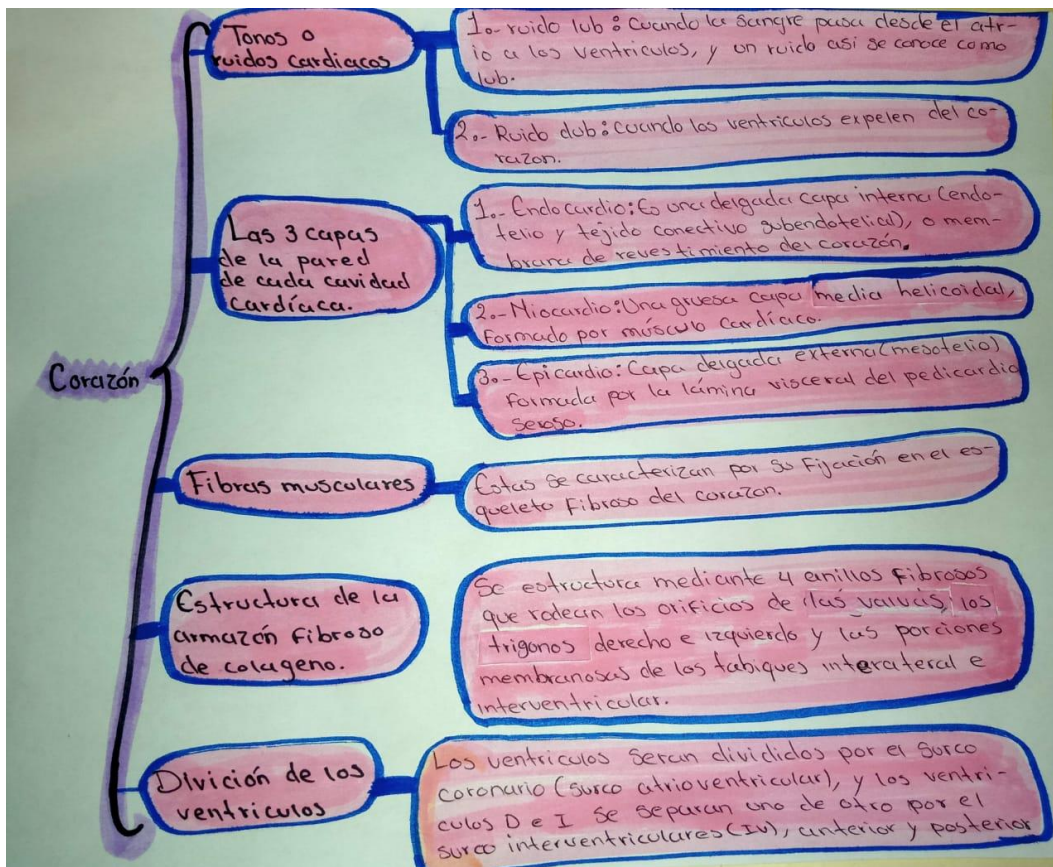 Corazón
Tonos o
ruidos cardiacos
1.- ruido lub: Cuando la sangre pasa desde el atr-
io a los ventriculos, y un ruido asi se conoce como
lub.
2.- Ruido dub: Cuando los ventriculos expelen del co-
razon.
Las 3 capas
de la pared
de cada cavidad
Cardíaca.
1.- Endocardio: Es una delgada capa interna (endo-
telio y tejido conectivo subendotelial), o mem-
brana de revestimiento del corazón.
2.- Miocardio: Una gruesa capa media helicoidal,
formado por músculo cardíaco.
3.- Epicardio: Capa delgada externa (mesotelio)
formada por la lámina visceral del pedicardio
seroso.
Fibras musculares
Estas se caracterizan por su fijación en el es-
queleto fibroso del corazon.
Estructura de la
armazón fibroso
de colageno.
Se estructura mediante 4 anillos fibrosos
que rodean los orificios de las valvas, los
trigonos derecho e izquierdo y las porciones
membranosas de los tabiques interateral e
interventricular.
División de los
ventriculos
Los ventriculos seran divididos por el surco
coronario (surco atrioventricular), y los ventri-
culos D e I se separan uno de otro por el
surco interventriculares (IV), anterior y posterior